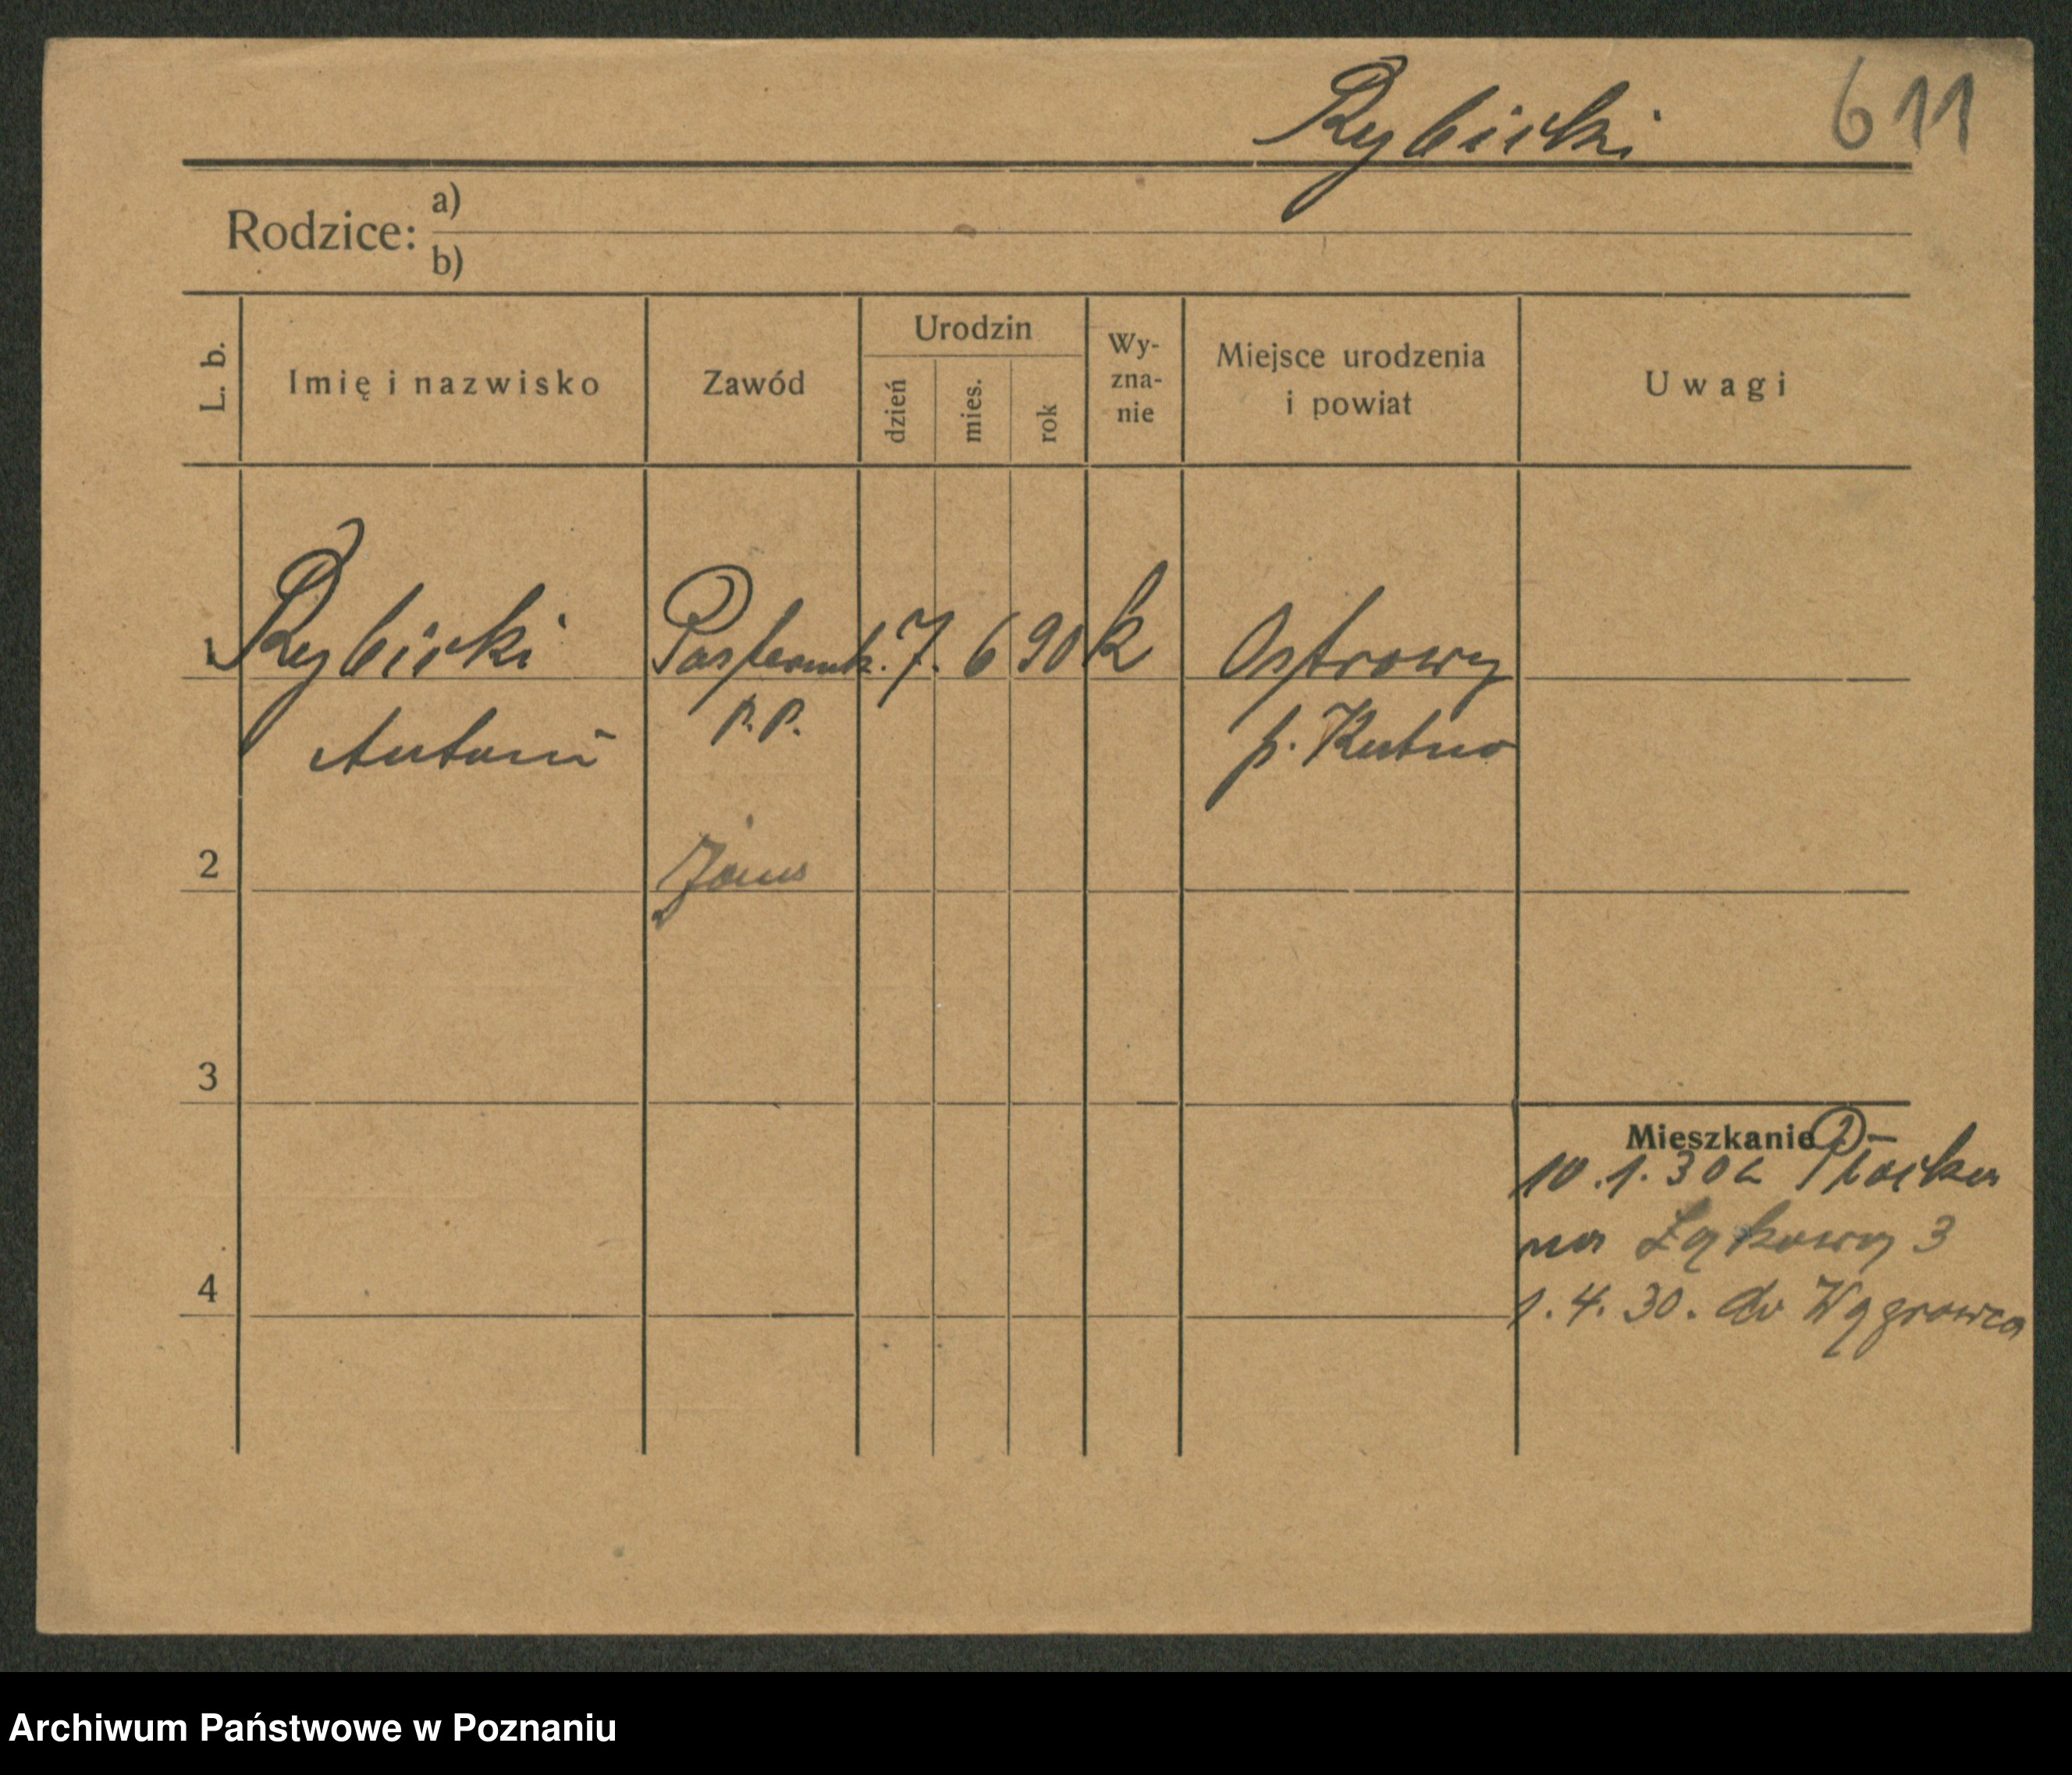 Rybicki 611
Rodzice: a)
b)
L. b.
Imię i nazwisko
Zawód
Urodzin
dzień
mies.
rok
Wy-
zna-
nie
Miejsce urodzenia
i powiat
Uwagi
1 Rybicki Posterunk. 7. 6 90 k Ostrowy
Antoni P.P. p. Kutno
2
3
Mieszkanie
10.1.30 z Płocka
na Łąkowy 3
4
1.4.30. do Wągrowca
Archiwum Państwowe w Poznaniu